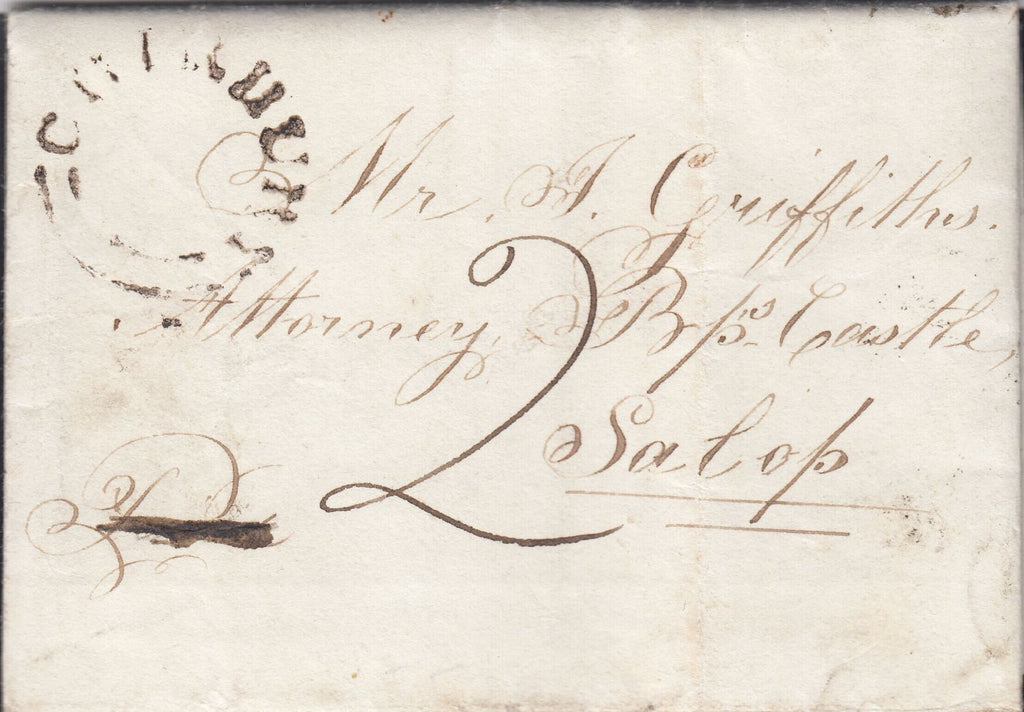 Mr. J. Griffiths.
Attorney, Bps. Castle,
2
Salop